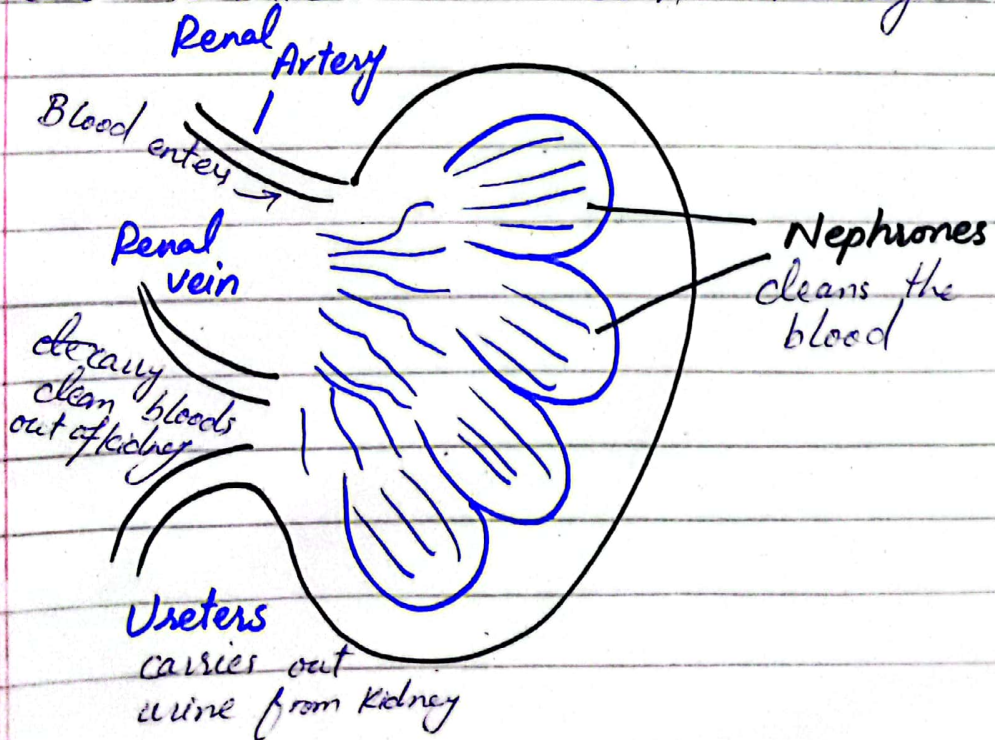 Renal
Artery
Blood
enter
Renal
vein
clean bloods
out of kidney
Nephrones
cleans the
blood
Ureters
carries out
urine from Kidney